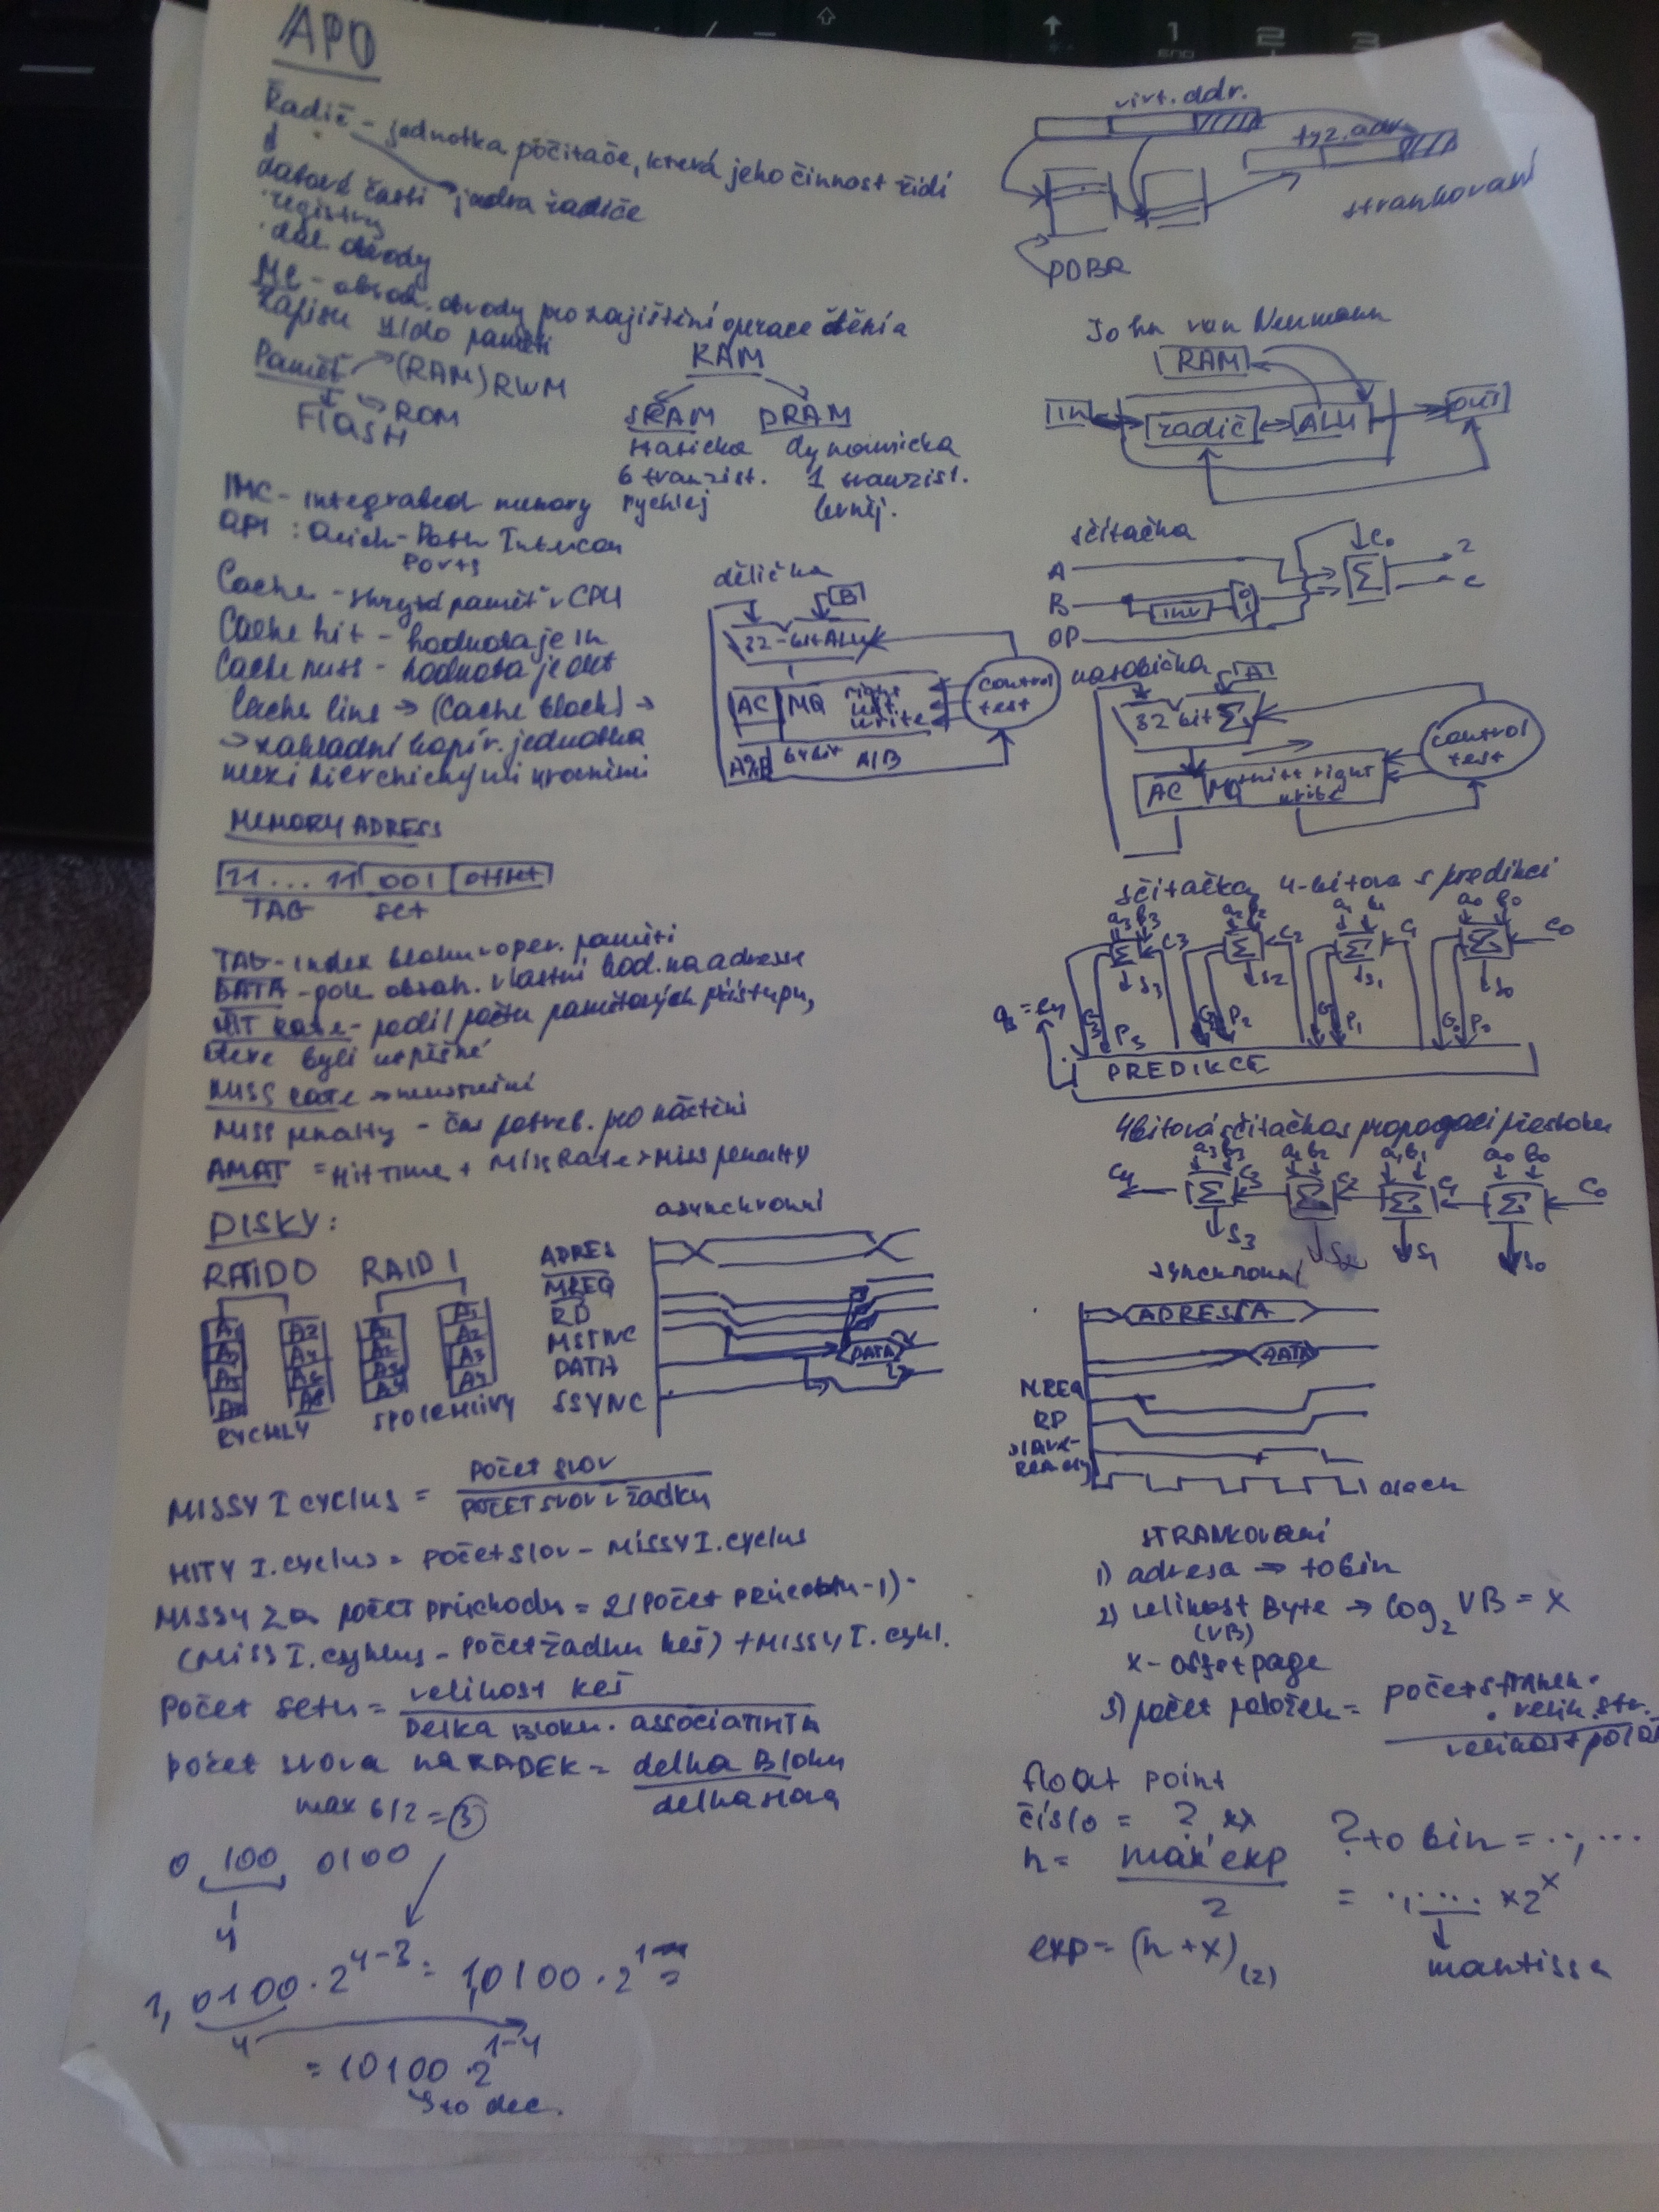 APO
Řadič - jednotka počítače, která jeho činnost řídí
datové části jádra řadiče
registry
dal. obvody
MC - obsah. obvody pro zajištění operace čtení a
zápisu z/do paměti
Paměť (RAM) RWM
ROM
FlasH
RAM
SRAM DRAM
statická dynamicka
6 tranzist. 1 tranzist.
rychlej levněj.
IMC - integrated memory
QPI : Quick-Path Intercon
Ports
Cache - skrytá paměť v CPU
Cache hit - hodnota je in
Cache miss - hodnota je out
Cache line → (Cache block) →
→ základní kopír. jednotka
mezi hierchickými úrovnimi
MEMORY ADRESS
11 ... 11 001 offset
TAG set
TAG - index bloku v oper. paměti
DATA - pole obsah. vlastní hod. na adresse
HIT RATE - podíl počtu paměťových přístupu,
ktere byli uspěšné
MISS RATE →neuspešní
Miss penalty - čas potreb. pro náčtění
AMAT = Hit Time + Miss Rate × Miss penalty
DISKY:
RAID 0 RAID 1
A1 A2 A1 A1
A3 A4 A2 A2
A5 A6 A3 A3
A7 A8 A4 A4
RYCHLY SPOLEHLIVY
asynchronní
ADRES
MREQ
RD
MSYNC
DATA
SSYNC
DATA
MISSY I cyclus = Počet slov
POČET SLOV v řádku
HITY I. cyclus = Počet slov - MISSY I. cyclus
MISSY za počet průchodu = 2(Počet průchodu - 1) ·
(MISS I. cyklus - Počet řádku keš) + MISSY I. cykl.
Počet setu = velikost keš
Delka Bloku . associativita
Počet slova na RADEK = delka Bloku
delka slova
max 6/2 = 3
0 100 0100
4
1,0100 · 2^4-3 = 1,0100 · 2^1 =
4
= 10100 · 2^1-4
to dec.
virt. addr.
fyz. adr.
strankovaní
PDBR
John van Neumann
RAM
in řadič ALU out
sčítačka
A
B
OP
inv
0
1
C0
Σ
C
dělička
B
32-bit ALU
AC MQ right
write
A%B 64bit A/B
control
test
nasobička
A
32 bit Σ
AC MQ shift right
write
control
test
sčítačka 4-bitova s predikcí
a3 b3 a2 b2 a1 b1 a0 b0
Σ C3 Σ C2 Σ C1 Σ C0
S3 S2 S1 S0
G3 P3 G2 P2 G1 P1 G0 P0
PREDIKCE
4bitová sčítačka s propagací přetoku
a3 b3 a2 b2 a1 b1 a0 b0
C4 Σ C3 Σ C2 Σ C1 Σ C0
S3 S2 S1 S0
synchronní
ADRESSA
DATA
MREQ
RD
slave-
ready
clock
STRANKOVANI
1) adresa → to bin
2) velikost Byte → log2 VB = x
(VB)
x - offset page
3) počet položek = počet stranek .
. velik. str.
float point
číslo = ?,xx
h = max exp
2
exp = (h + x)(2)
? to bin = ..,...
= .,.... × 2^x
mantissa